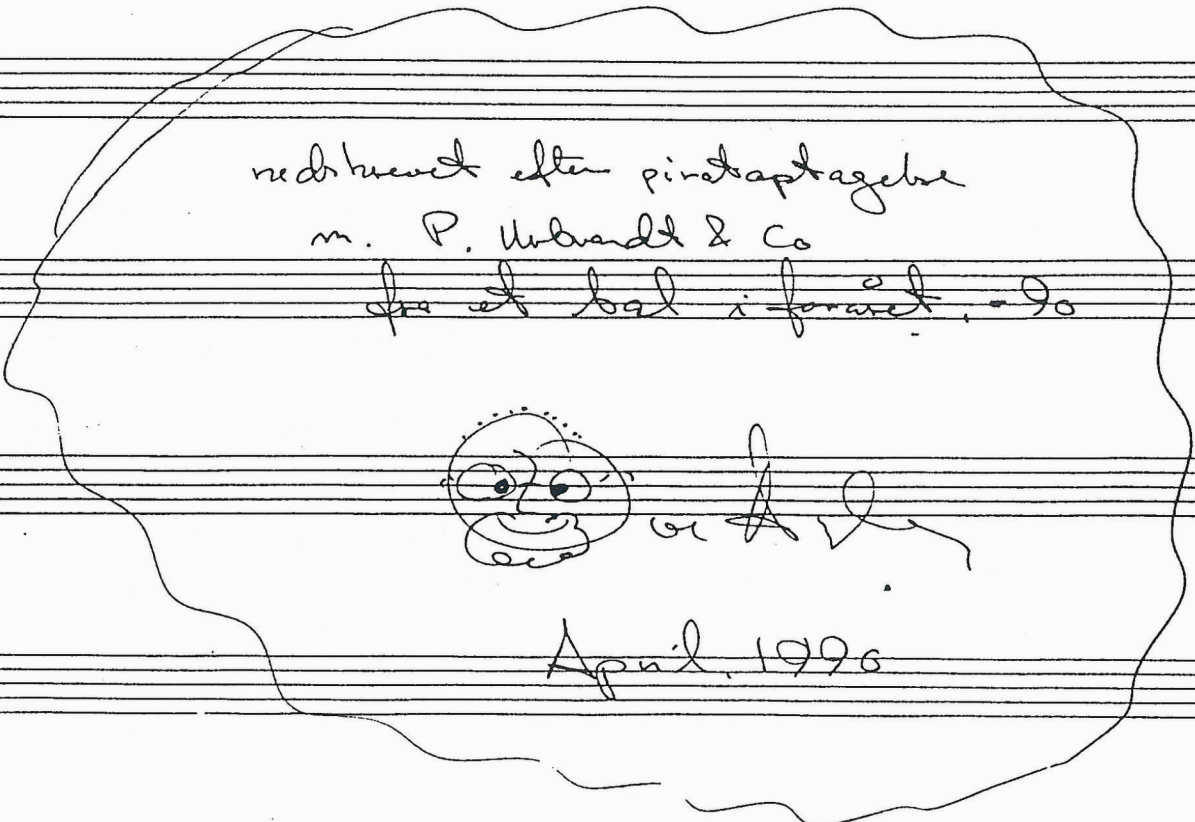 nedskrevet efter pirataptagelse
m. P. Urbrandt & Co
fra et bal i foråret, -90
April, 1990